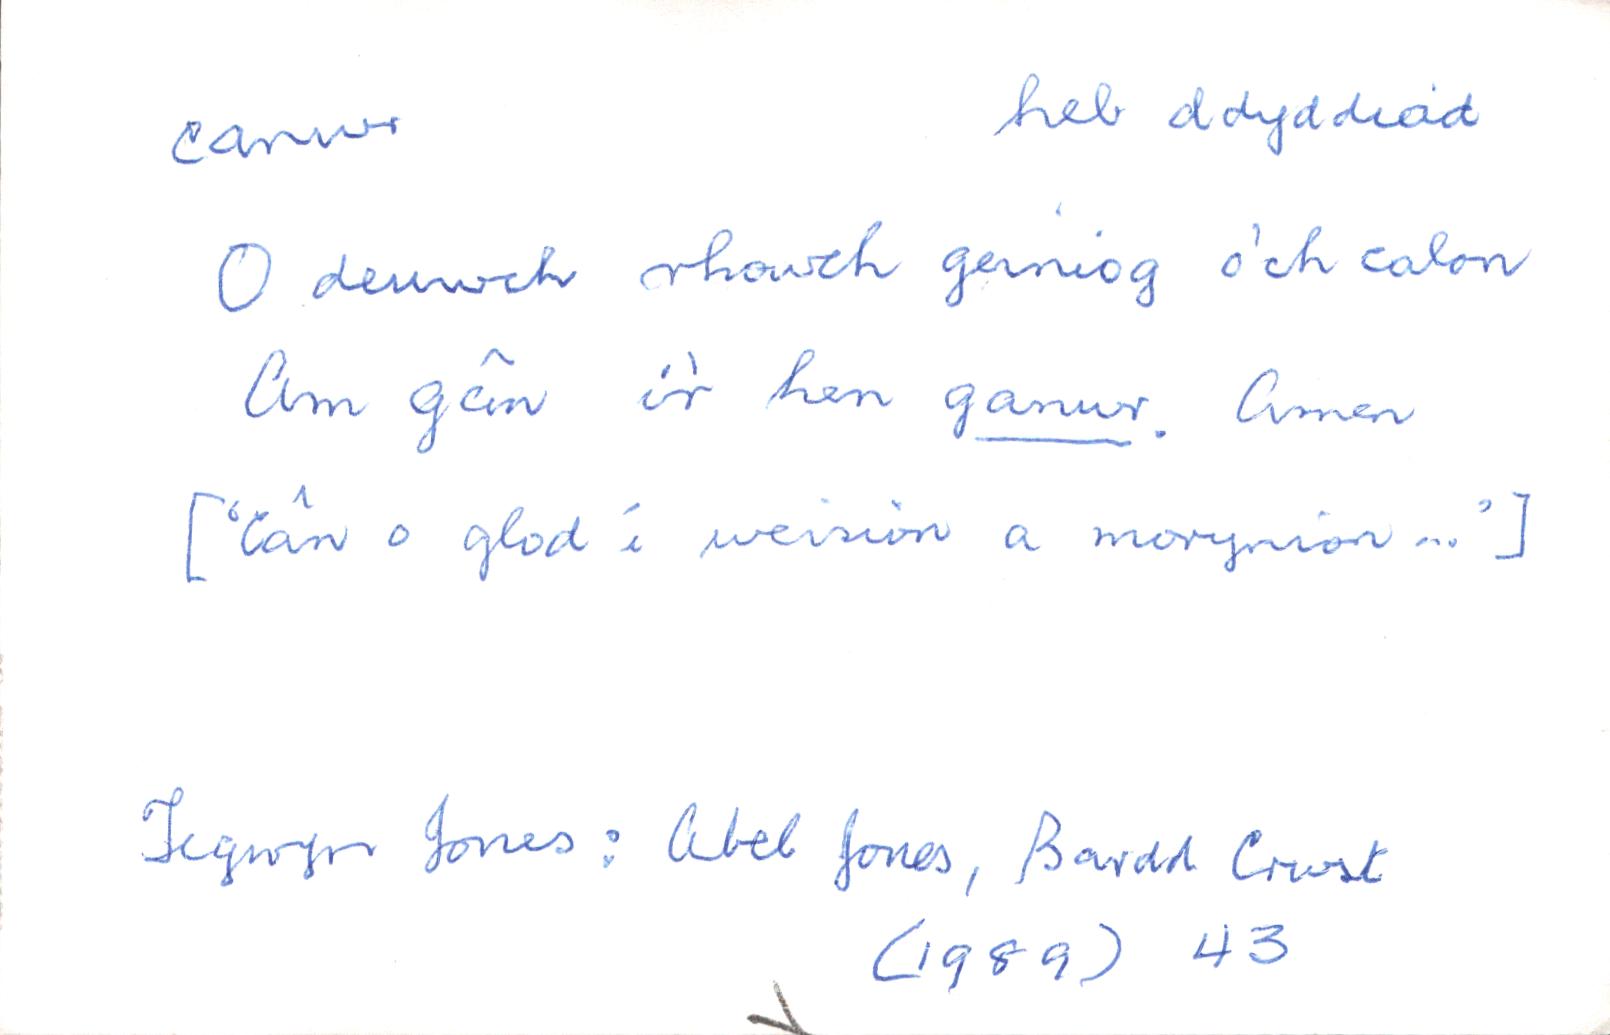 canwr heb ddyddiad
O deuwch rhowch geiniog o'ch calon
Am gân i'r hen ganwr. Amen
['Cân o glod i weision a morynion ...']
Tegwyn Jones: Abel Jones, Bardd Crwst
(1989) 43